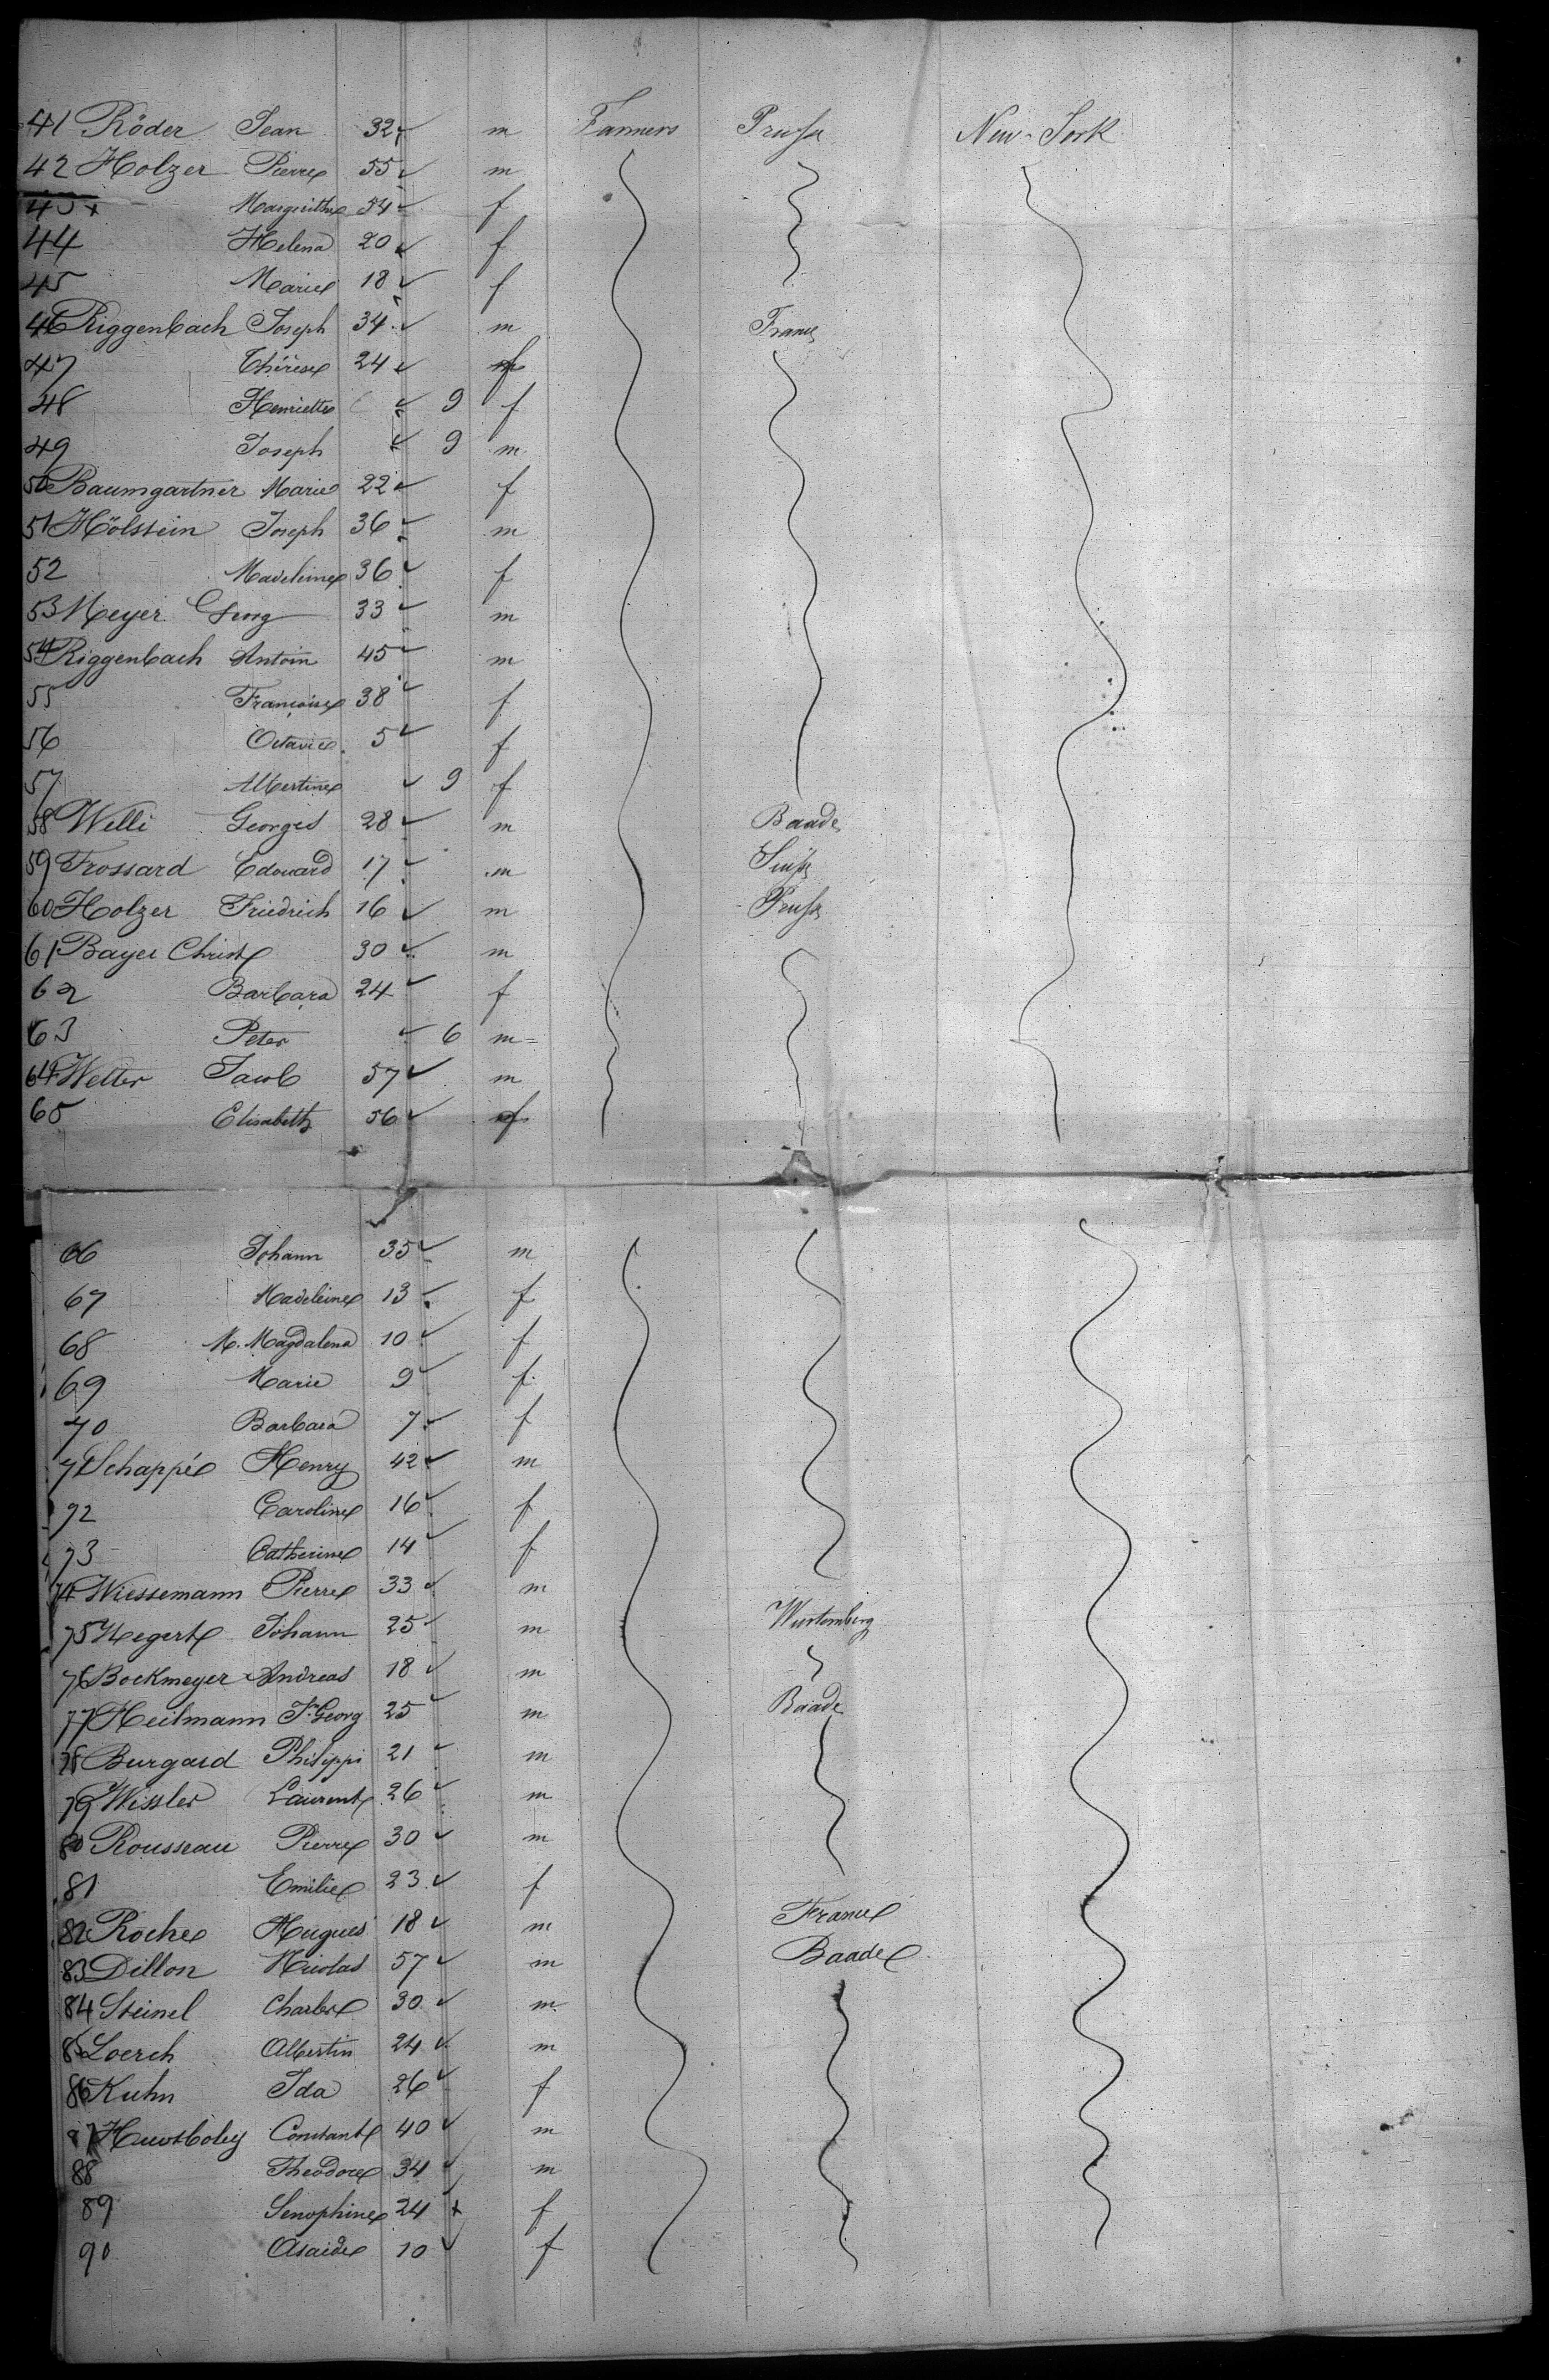 41 Röder Jean 32 m Farmers Prusse New-York
42 Holzer Pierre 55 m
43 Margerithe 54 f
44 Helena 20 f
45 Marie 18 f
46 Riggenbach Joseph 34 m France
47 Thérèse 24 f
48 Henriette 9 f
49 Joseph 9 m
50 Baumgartner Marie 22 f
51 Hölstein Joseph 36 m
52 Madeleine 36 f
53 Meyer Georg 33 m
54 Riggenbach Antoin 45 m
55 Françoise 38 f
56 Octavie 5 f
57 Albertine 9 f
58 Welli Georges 28 m Baade
59 Frossard Edouard 17 m Suisse
60 Holzer Friedrich 16 m Prusse
61 Bayer Christ 30 m
62 Barbara 24 f
63 Peter 6 m
64 Welter Jacob 57 m
65 Elisabeth 56 f
66 Johann 35 m
67 Madeleine 13 f
68 M. Magdalena 10 f
69 Marie 9 f
70 Barbara 7 f
71 Schappé Henry 42 m
72 Caroline 16 f
73 Catherine 14 f
74 Wiessemann Pierre 33 m
75 Hegert Johann 25 m Wurtemberg
76 Bockmeyer Andreas 18 m
77 Heilmann Jn. Georg 25 m Baade
78 Burgard Philippi 21 m
79 Wissler Laurent 26 m
80 Rousseau Pierre 30 m
81 Emilie 23 f
82 Roche Hugues 18 m France
83 Dillon Nicolas 57 m Baade
84 Steinel Charles 30 m
85 Loerch Albertin 24 m
86 Kuhn Ida 26 f
87 Constant 40 m
88 Theodore 34 m
89 Senophine 24 f
90 Asaide 10 f